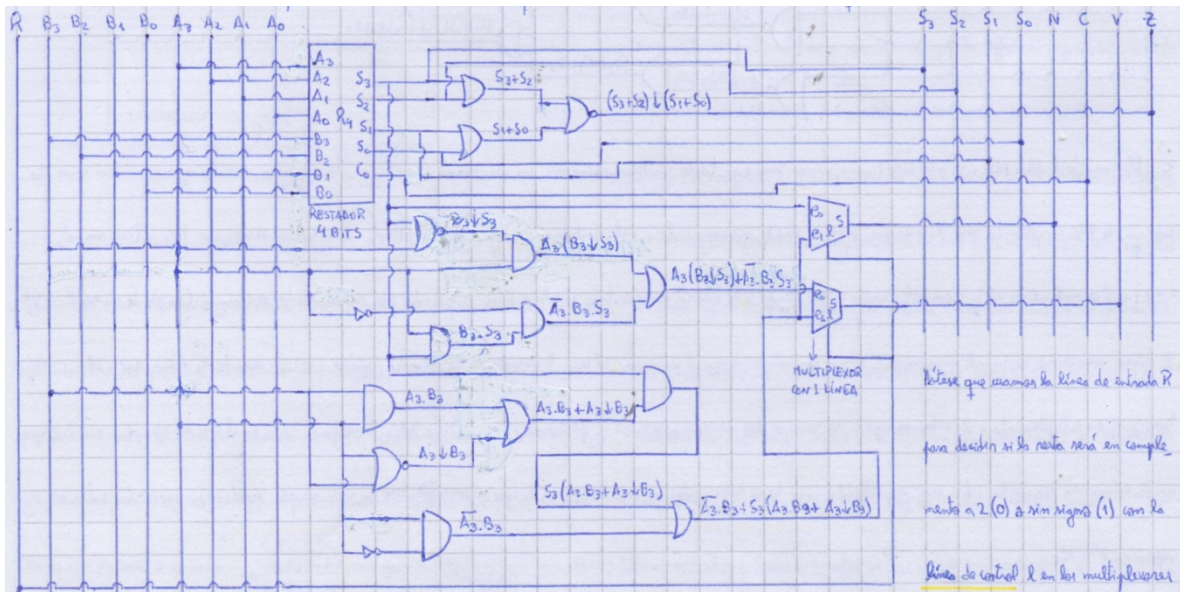 R B₃ B₂ B₁ B₀ A₃ A₂ A₁ A₀ S₃ S₂ S₁ S₀ N C V Z
A₃
A₂ S₃
A₁ S₂
A₀ R₄ S₁
B₃ S₀
B₂
B₁ C₀
B₀
RESTADOR
4 BITS
S₃+S₂
(S₃+S₂)↓(S₁+S₀)
S₁+S₀
e₀ S
e₁ l
B₃↓S₃
A₃(B₃↓S₃)
A₃(B₃↓S₃)+A̅₃.B₃.S₃
e₀ S
e₁ l
A̅₃.B₃.S₃
B₃.S₃
MULTIPLEXOR
CON 1 LÍNEA
A₃.B₃
A₃.B₃+A₃↓B₃
A₃↓B₃
S₃(A₃.B₃+A₃↓B₃)
A̅₃.B₃
A̅₃.B₃+S₃(A₃.B₃+A₃↓B₃)
Nótese que usamos la línea de entrada R
para decidir si la resta será en comple_
mento a 2 (0) o sin signo (1) con la
línea de control l en los multiplexores